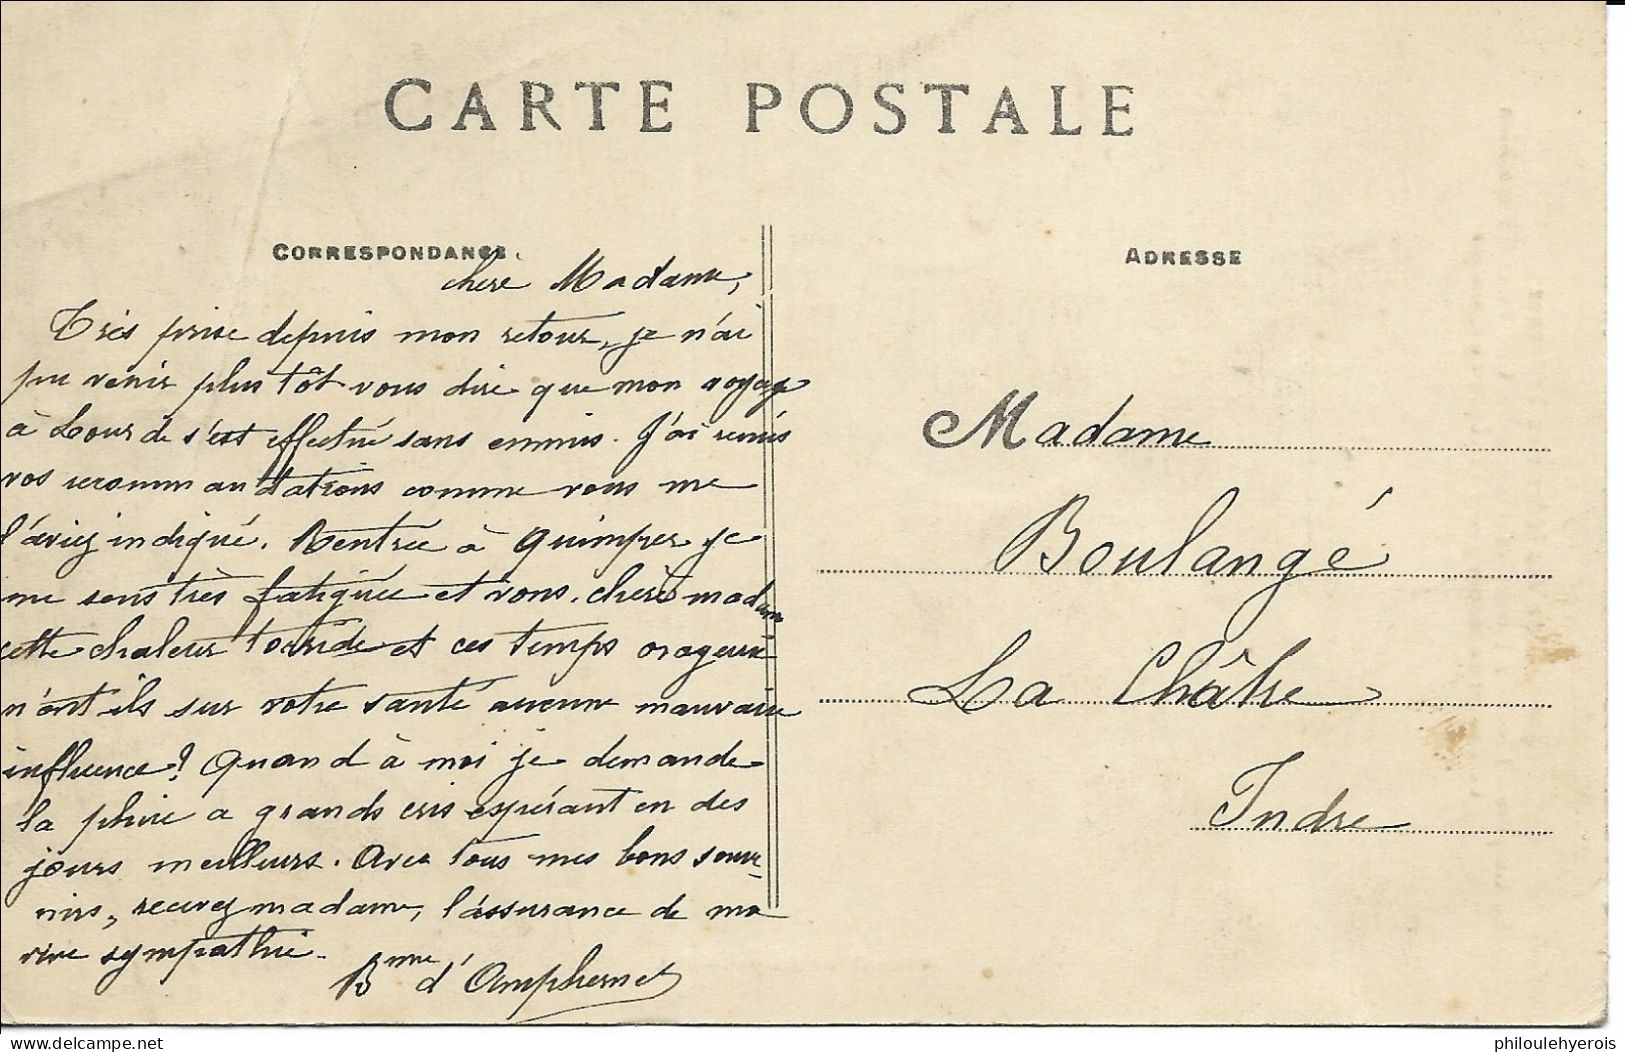 CARTE POSTALE
CORRESPONDANCE.
chère Madame,
Très prise depuis mon retour, je n'ai
pu venir plus tôt vous dire que mon voyage
à Lourde s'est effectué sans ennuis. J'ai remis
vos recommandations comme vous me
l'aviez indiqué. Rentrée à Quimper je
me sens très fatiguée et vous, chère madame
cette chaleur torride et ces temps orageux
n'ont ils sur votre santé aucune mauvaise
influence? Quand à moi je demande
la pluie a grands cris espérant en des
jours meilleurs. Avec tous mes bons souve-
nirs, recevez madame, l'assurance de ma
vive sympathie.
Bnne d'Amphernet
ADRESSE
Madame
Boulangé
La Châtre
Indre
delcampe.net
philoulehyerois